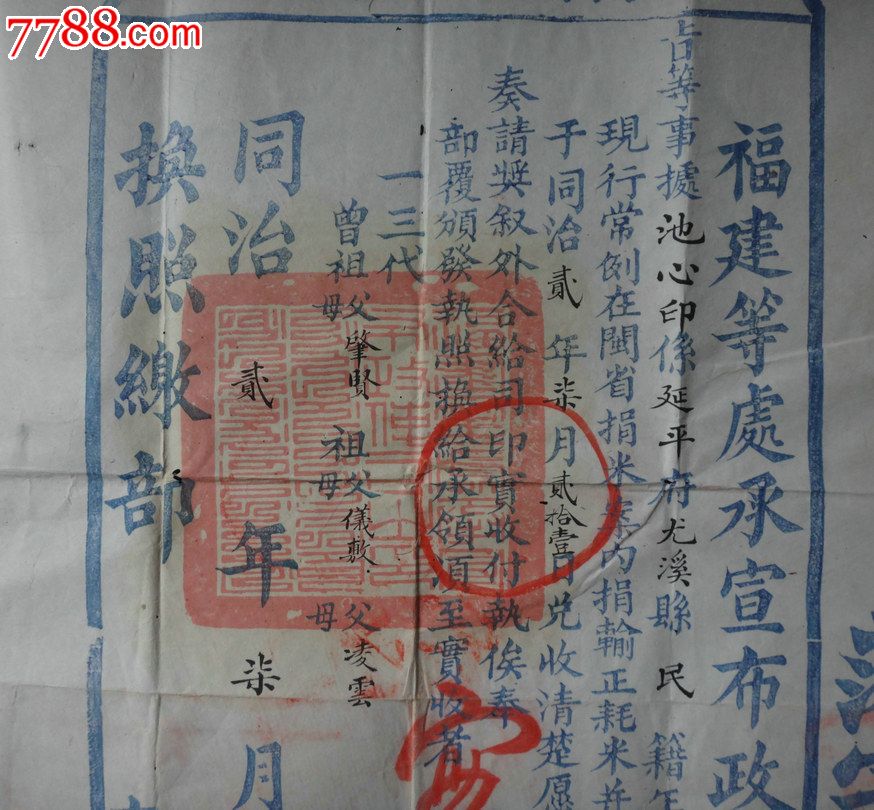 7788.com
福建等處承宣布政
旨等事據池心印係延平府尤溪縣民籍年
現行常例在閩省捐米案內捐輸正耗米并
于同治貳年柒月貳拾壹日兌收清楚愿
奏請獎叙外合給司印實收付執俟奉
部覆頒發執照換給承領須至實收者
一三代
曾祖父肇賢 祖父儀敷 父凌雲
母 母 母
同治貳年柒月
換照繳部